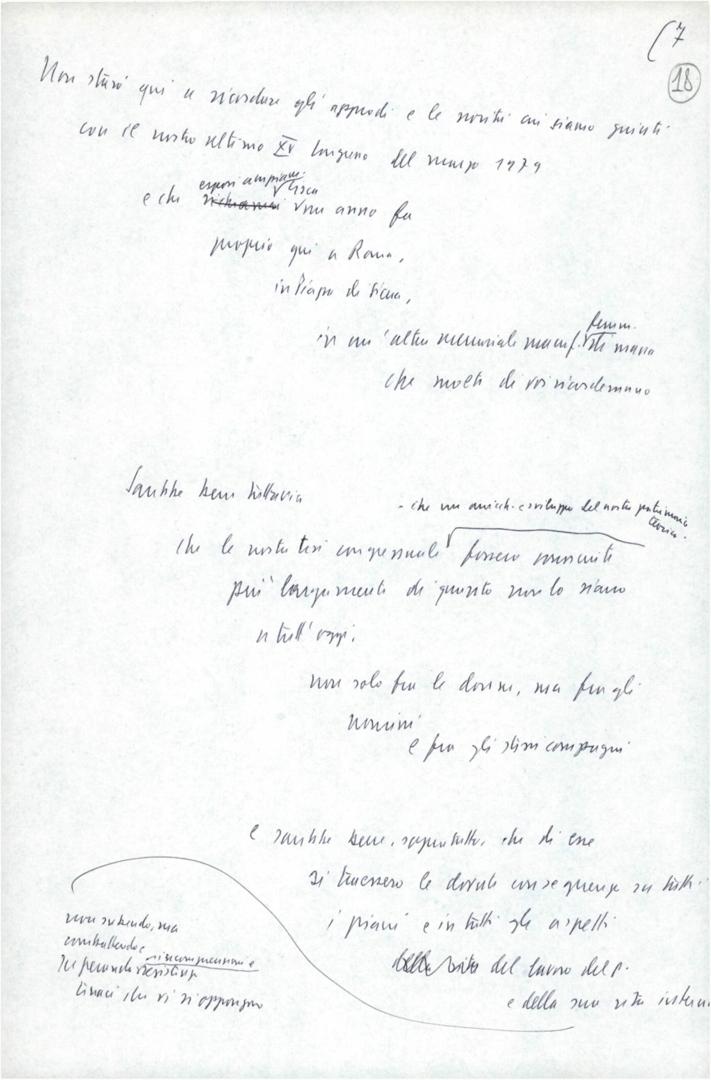 (7
18
Non starò qui a ricordare gli approdi e le novità cui siamo giunti
con il nostro ultimo XV Congresso del marzo 1979
esposi ampiam.
e che richiamai un anno fa
proprio qui a Roma,
in Piazza di Siena,
femm.
in un'altra memorabile manif. di massa
che molti di voi ricorderanno
Sarebbe bene tuttavia
- che un arricch. e sviluppo del nostro patrimonio
teorico -
che le nostre tesi congressuali fossero conosciute
più largamente di quanto non lo siano
a tutt'oggi,
non solo fra le donne, ma fra gli
uomini
e fra gli stessi compagni
e sarebbe bene, soprattutto, che di esse
si traessero le dovute conseguenze su tutti
i piani e in tutti gli aspetti
della vita del lavoro del p.
e della sua vita interna
non subendo, ma
combattendo e
superando incomprensioni e
resistenze
tenaci che vi si oppongono